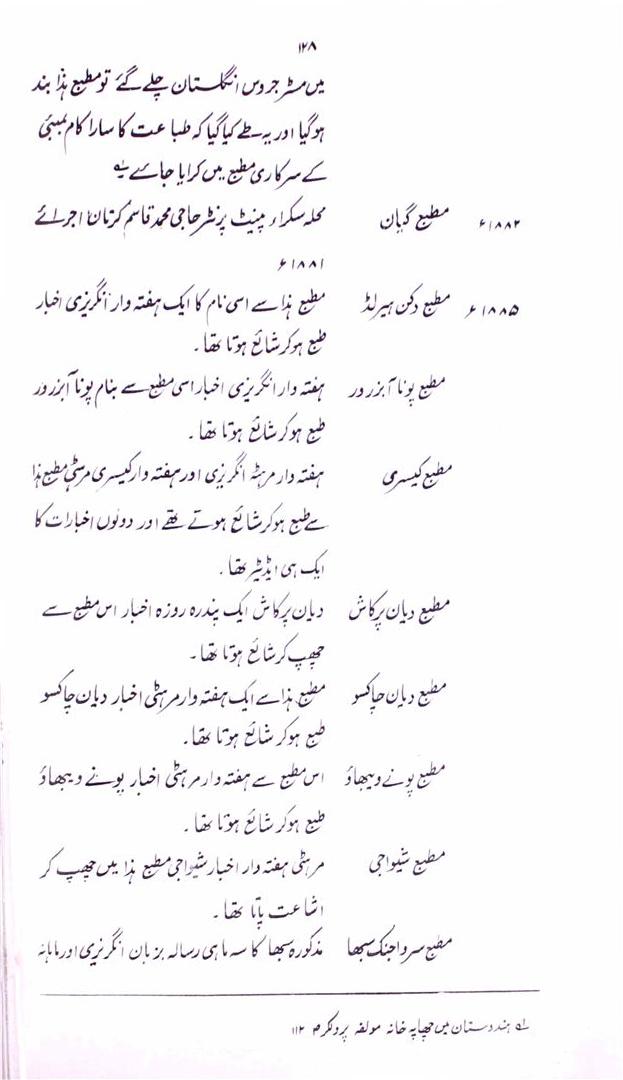 ۱۲۸
میں مسٹر جروس انگلستان چلے گئے تو مطبع ہٰذا بند
ہوگیا اور یہ طے کیا گیا کہ طباعت کا سارا کام بمبئی
کے سرکاری مطبع میں کرایا جائے لہ
۱۸۸۲ء مطبع گہان محلہ سکراء پینٹ پرنٹر حاجی محمد قاسم اجرائے
۱۸۸۱ء
۱۸۸۵ء مطبع دکن ہیرلڈ مطبع ہذا سے اسی نام کا ایک ہفتہ وار انگریزی اخبار
طبع ہوکر شائع ہوتا تھا۔
مطبع پونا آبزرور ہفتہ وار انگریزی اخبار اسی مطبع سے بنام پونا آبزرور
طبع ہوکر شائع ہوتا تھا۔
مطبع کیسری ہفتہ وار مرہٹہ انگریزی اور ہفتہ وار کیسری مرہٹی مطبع ہذا
سے طبع ہوکر شائع ہوتے تھے اور دونوں اخبارات کا
ایک ہی ایڈیٹر تھا۔
مطبع دیان پرکاش دیان پرکاش ایک پندرہ روزہ اخبار اس مطبع سے
چھپ کر شائع ہوتا تھا۔
مطبع دیان چاکسو مطبع ہذا سے ایک ہفتہ وار مرہٹی اخبار دیان چاکسو
طبع ہوکر شائع ہوتا تھا۔
مطبع پونے ویبھاؤ اس مطبع سے ہفتہ وار مرہٹی اخبار پونے ویبھاؤ
طبع ہوکر شائع ہوتا تھا۔
مطبع شیواجی مرہٹی ہفتہ وار اخبار شیواجی مطبع ہذا میں چھپ کر
اشاعت پاتا تھا۔
مطبع سرواجنک سبھا مذکورہ سبھا کا سہ ماہی رسالہ بزبان انگریزی اور ماہانہ
لہ ہندوستان میں چھاپہ خانہ مولفہ پرولکر ص ۱۱۲